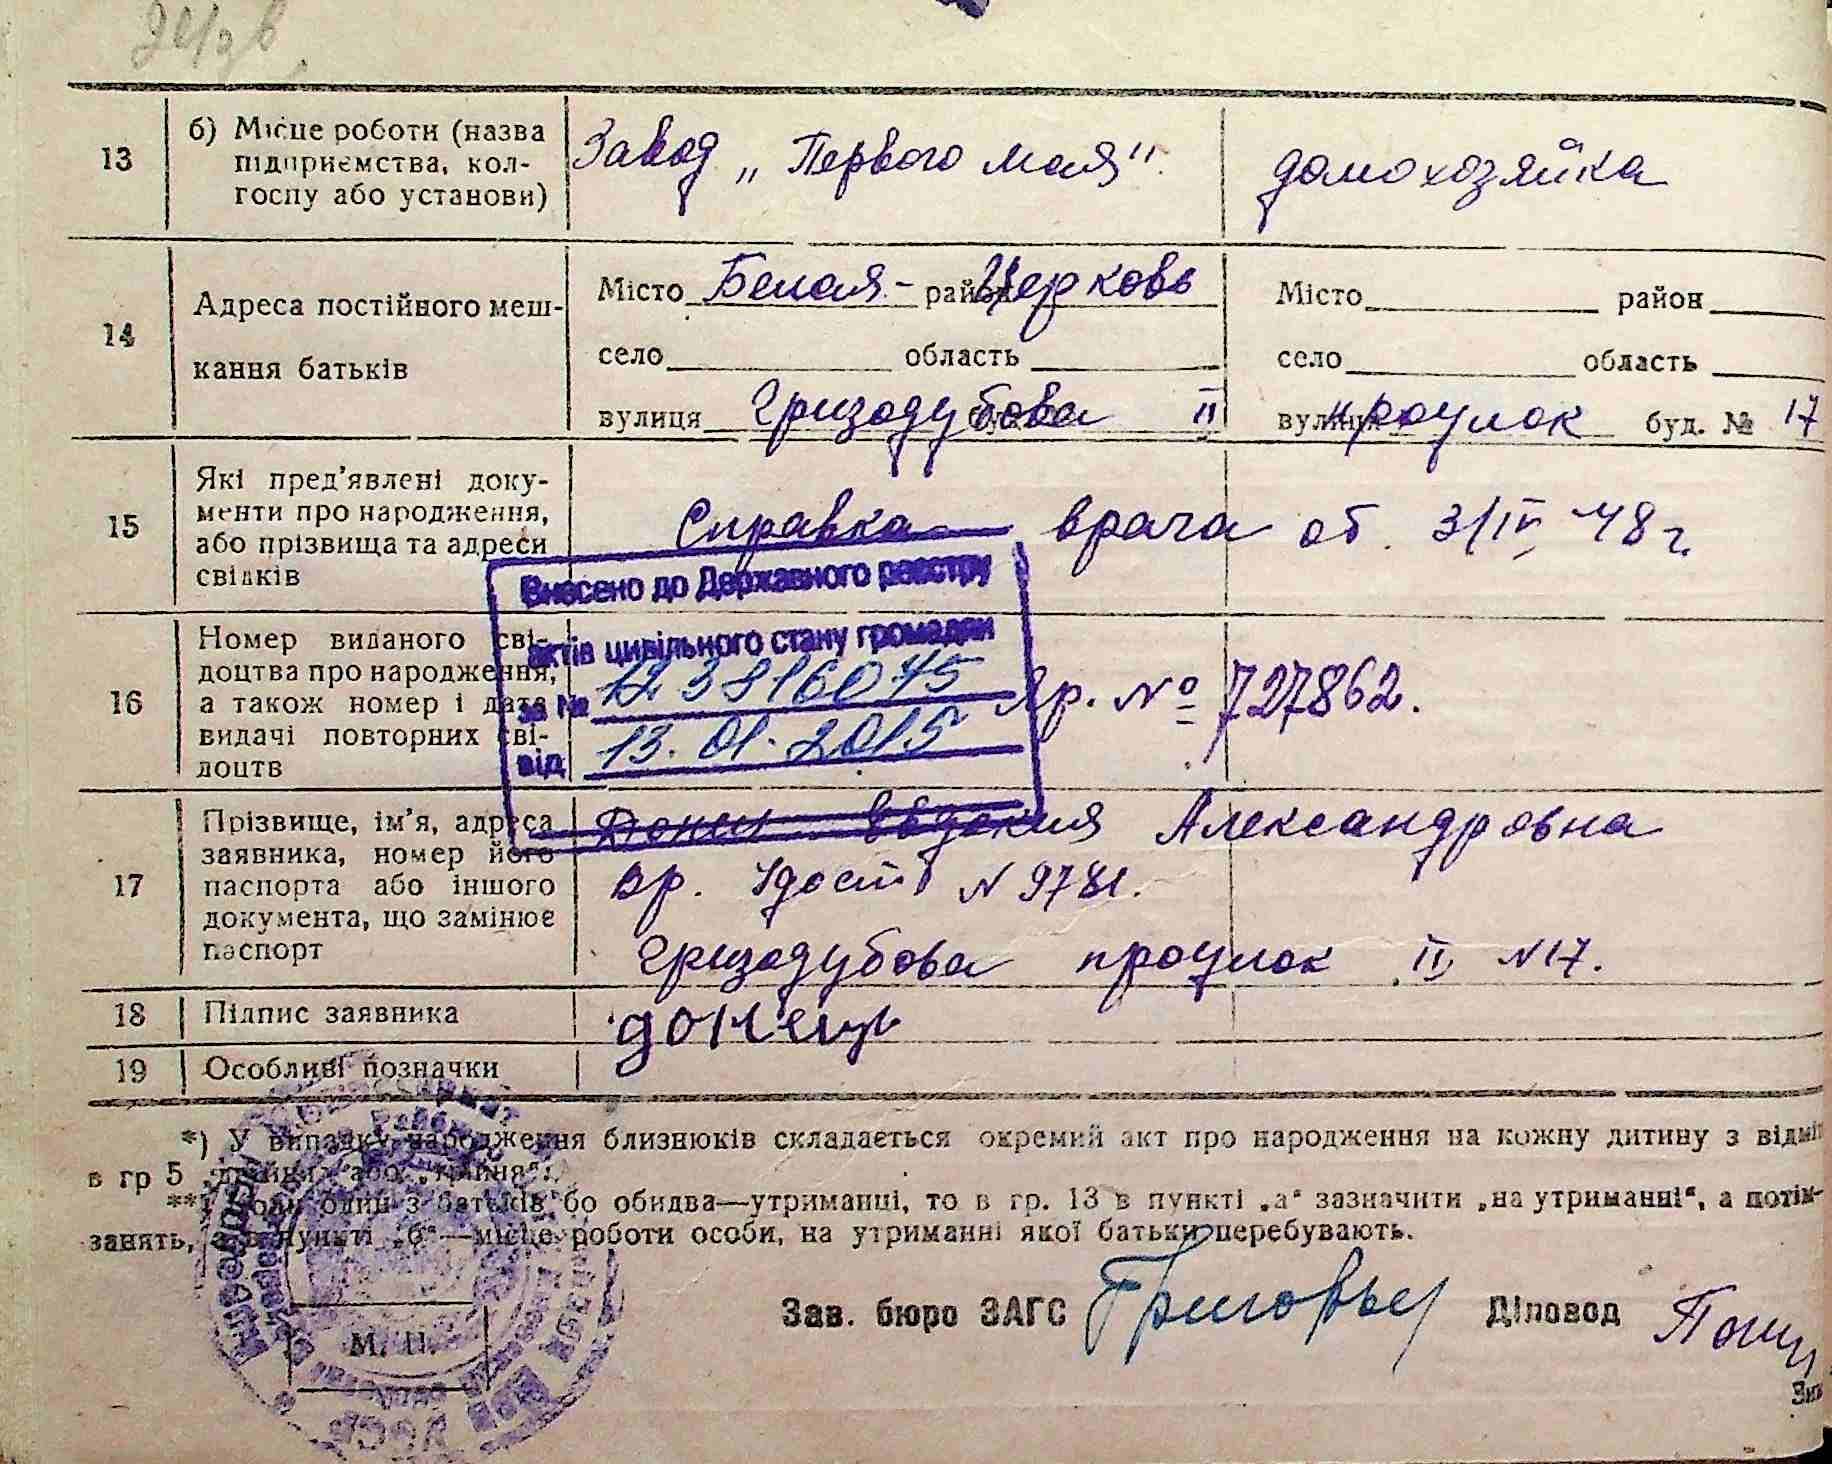 13
б) Місце роботи (назва
підприємства, кол-
госпу або установи)
Завод „Первого мая"
домохозяйка
14
Адреса постійного меш-
кання батьків
Місто Белая- район Церковь
село область
вулиця Гризодубова II
Місто район
село область
вулиця проулок буд. № 17
15
Які пред'явлені доку-
менти про народження,
або прізвища та адреси
свідків
Справка врача от 3/IV 48 г.
16
Номер виданого сві-
доцтва про народження,
а також номер і дата
видачі повторних сві-
доцтв
Внесено до Державного реєстру
актів цивільного стану громадян
за №
від 13.01.2015
№ 727862.
17
Прізвище, ім'я, адреса
заявника, номер його
паспорта або іншого
документа, що замінює
паспорт
Донец Евдокия Александровна
вр. Удост N 9781.
Гризодубова проулок II N17.
18
Підпис заявника
донець
19
Особливі позначки
*) У випадку народження близнюків складається окремий акт про народження на кожну дитину з відміт
в гр 5 „двійня" або „трійня".
**) Коли один з батьків бо обидва—утриманці, то в гр. 13 в пункті „а" зазначити „на утриманні", а потім
занять, а в пункті „б"—місце роботи особи, на утриманні якої батьки перебувають.
М. П.
УССР
Зав. бюро ЗАГС
Діловод